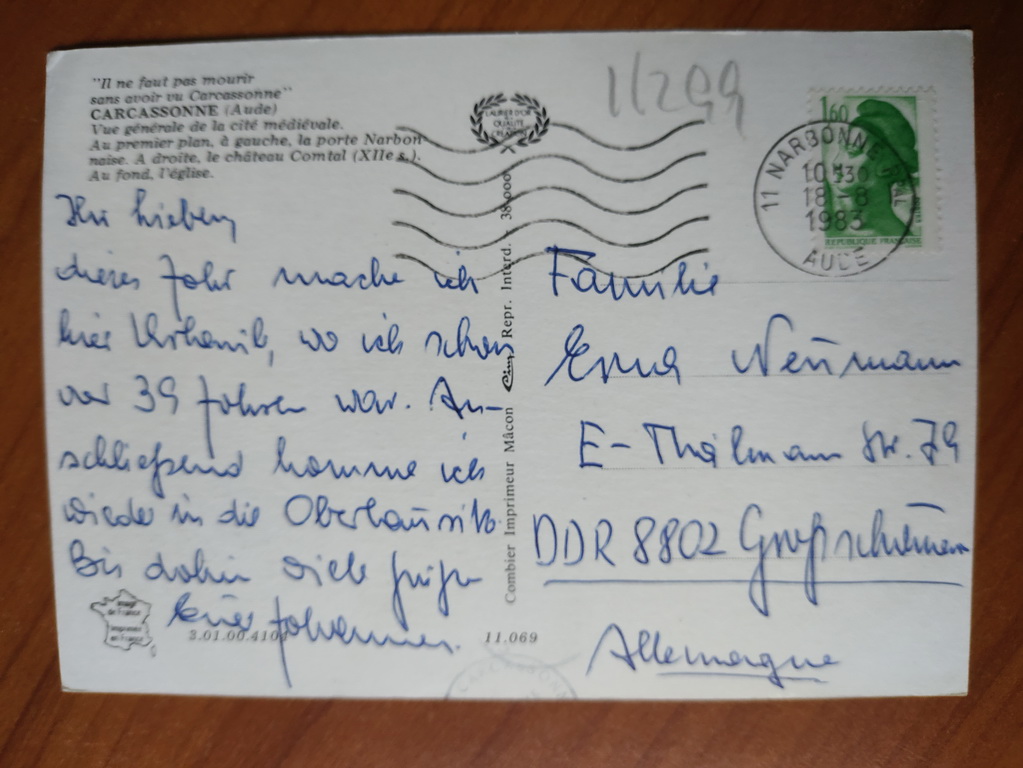 "Il ne faut pas mourir
sans avoir vu Carcassonne"
CARCASSONNE (Aude)
Vue générale de la cité médiévale.
Au premier plan, à gauche, la porte Narbon-
naise. A droite, le château Comtal (XIIe s.).
Au fond, l'église.
Ihr Lieben,
dieses Jahr mache ich
hier Urlaub, wo ich schon
vor 39 Jahren war. An-
schließend komme ich
wieder in die Oberlausitz.
Bis dahin viele Grüße
Euer Johannes.
3.01.00.4101
11.069
Combier Imprimeur Mâcon Repr. Interd. - 38.000
1/299
1,60
REPUBLIQUE FRANÇAISE
11 NARBONNE
10H30
18-8
1983
AUDE
Familie
Erna Neumann
E-Thälmann Str. 79
DDR 8802 Großschönau
Allemagne
CARCASSONNE